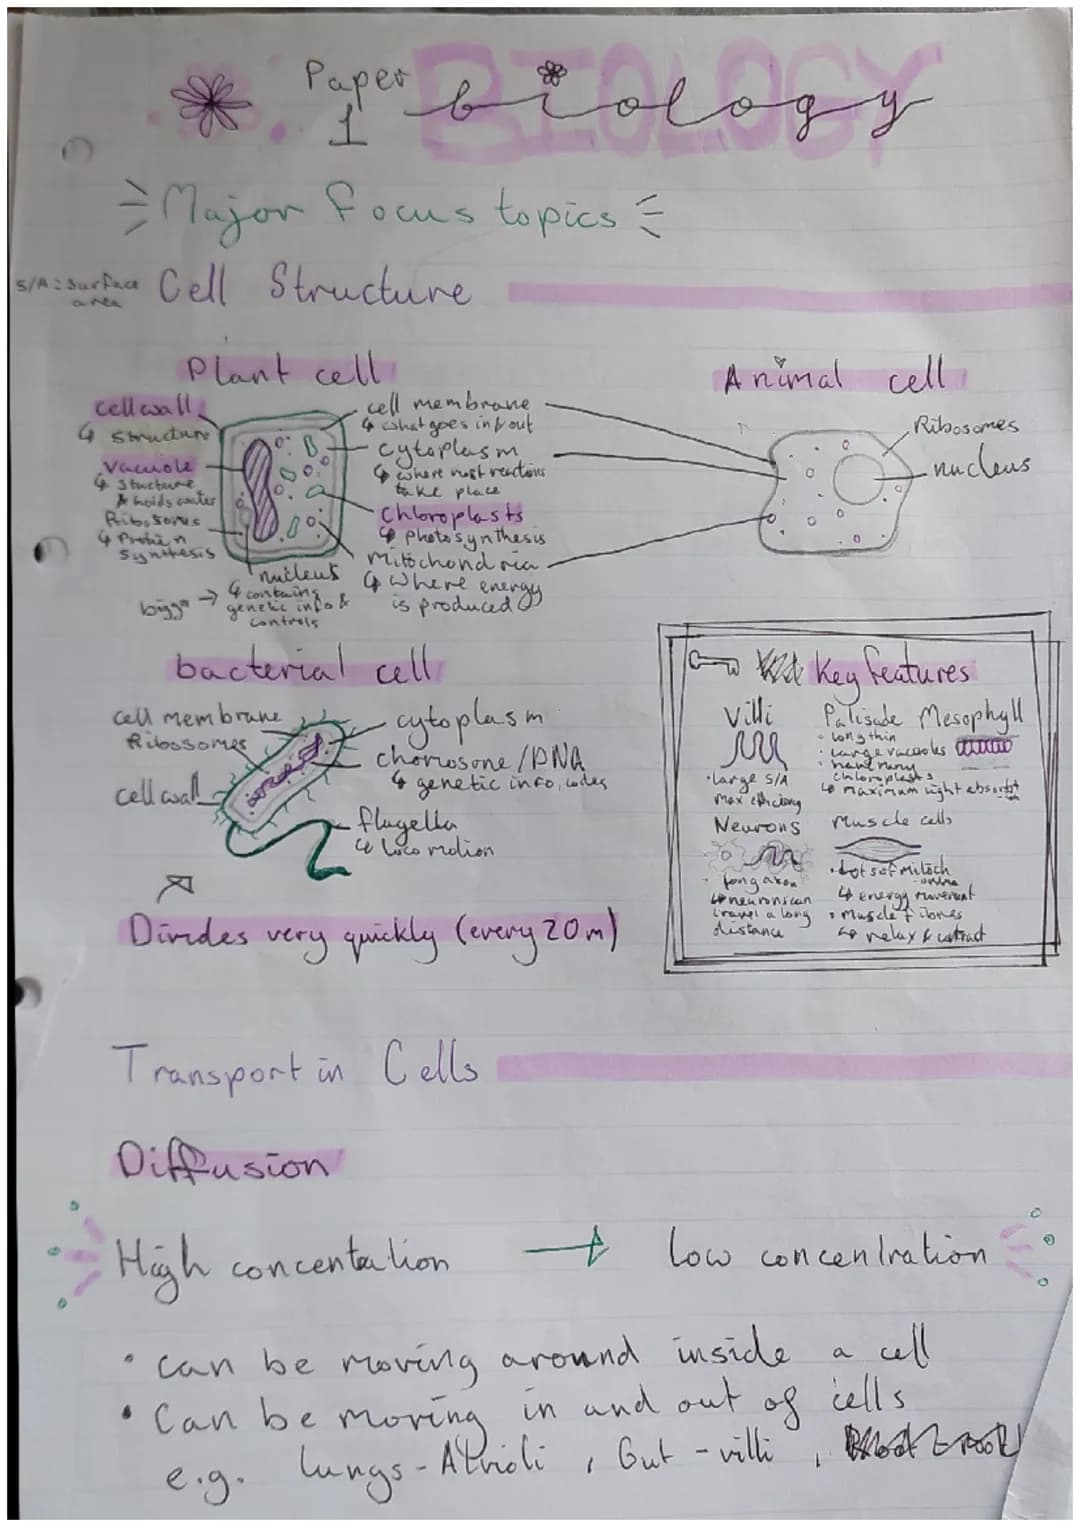 BIOLOGY
Paper 1 biology
Major focus topics
S/A = surface area
Cell Structure
Plant cell
cell wall
structure
vacuole
structure
& holds water
Ribosomes
Protien
synthesis
nucleus
contains
genetic info &
controls
bigger
cell membrane
what goes in & out
cytoplasm
where most reactions
take place
Chloroplasts
photosynthesis
Mitochondria
where energy
is produced
Animal cell
Ribosomes
nucleus
bacterial cell
cell membrane
Ribosomes
cell wall
cytoplasm
chomosone / DNA
genetic info, codes
flagella
loco motion
Divides very quickly (every 20m)
Key features
Villi
large S/A
max efficiency
Palisade Mesophyll
long thin
large vacuoles
have many
chloroplasts
maximum light absorbt
Neurons
long axon
neurons can
travel a long
distance
Muscle cells
lots of mitoch
energy movement
Muscle + bones
relax & contract
Transport in Cells
Diffusion
High concentation → low concentration
• can be moving around inside a cell
• Can be moving in and out of cells
e.g. lungs - Alvioli, Gut - villi,